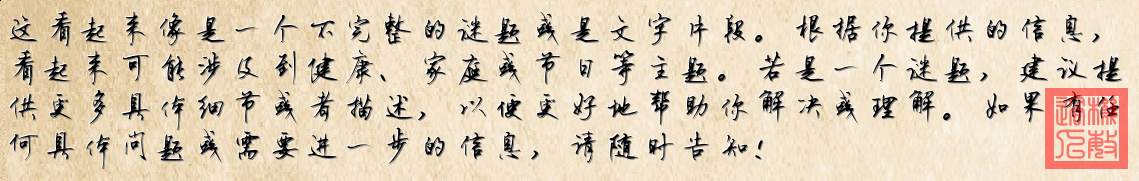 这看起来像是一个不完整的谜题或是文字片段。根据你提供的信息，
看起来可能涉及到健康、家庭或节日等主题。若是一个谜题，建议提
供更多具体细节或者描述，以便更好地帮助你解决或理解。如果有任
何具体问题或需要进一步的信息，请随时告知！